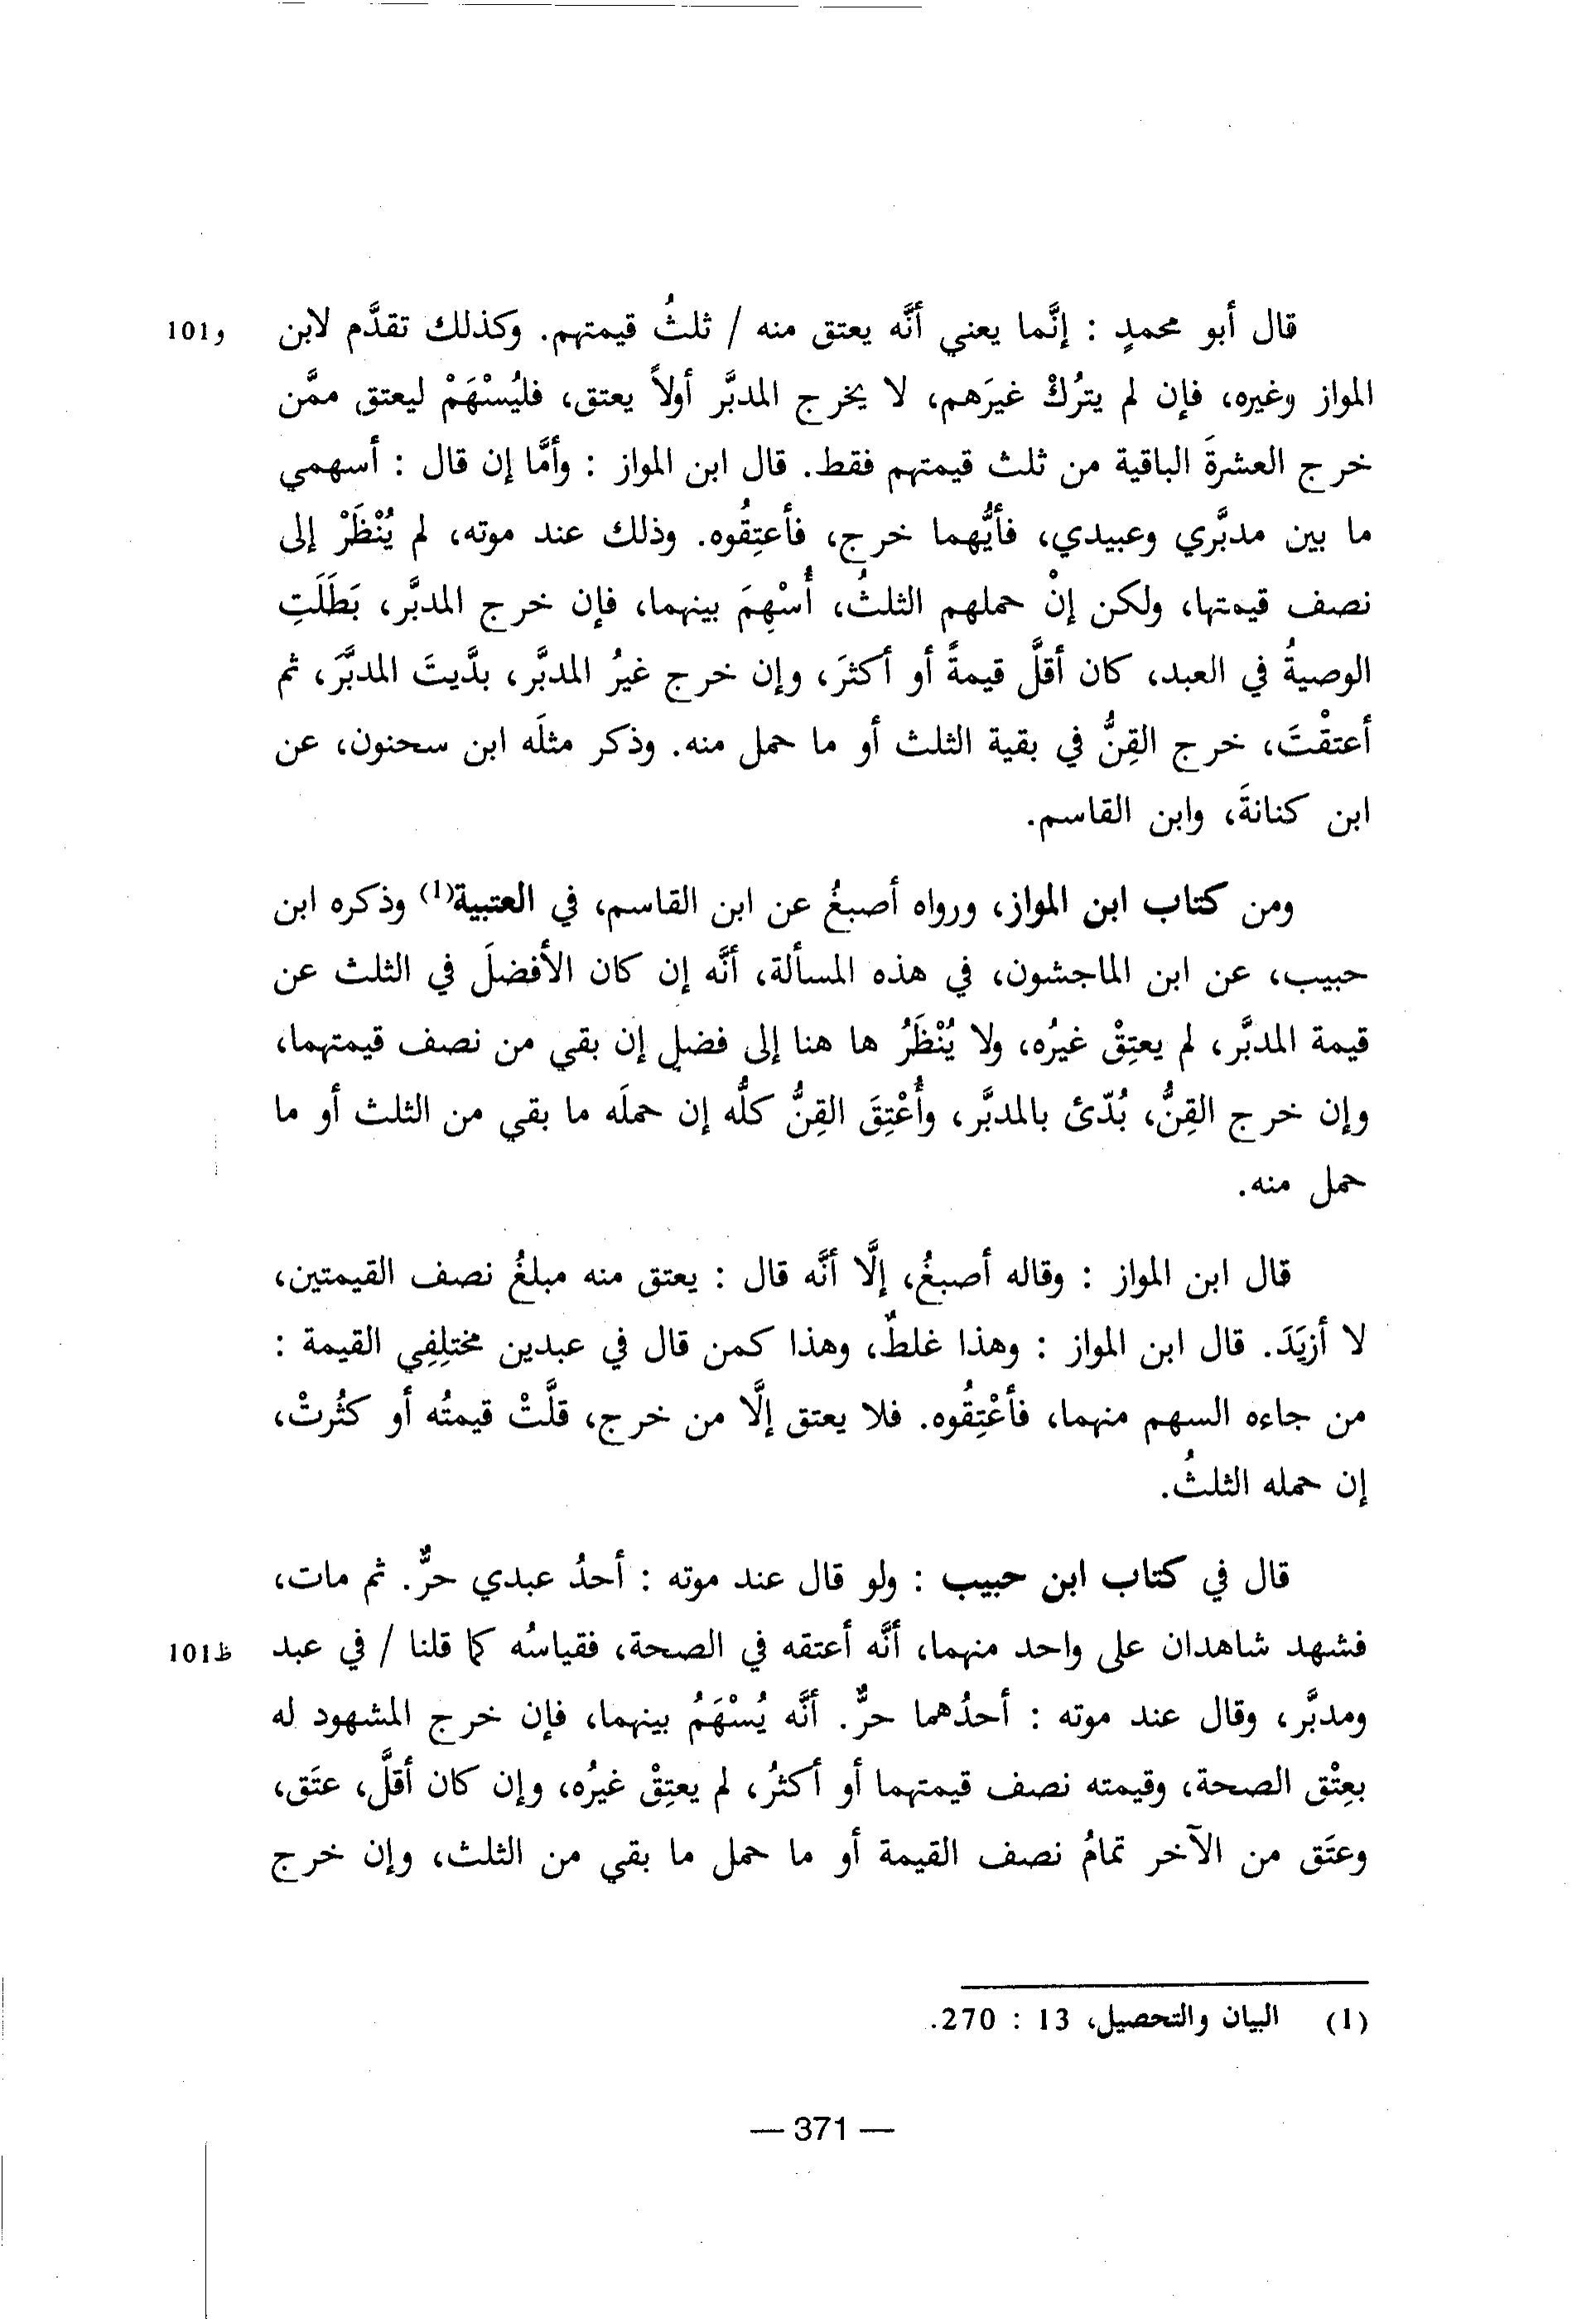 قال أبو محمدٍ : إنَّما يعني أنَّه يعتق منه / ثلثُ قيمتهم. وكذلك تقدَّم لابن و101
المواز وغيره، فإن لم يترُكْ غيرَهم، لا يخرج المدبَّر أولاً يعتق، فليُسْهَمْ ليعتق ممَّن
خرج العشرةَ الباقية من ثلث قيمتهم فقط. قال ابن المواز : وأمَّا إن قال : أسهمي
ما بين مدبَّري وعبيدي، فأيُّهما خرج، فأعتِقُوه. وذلك عند موته، لم يُنْظَرْ إلى
نصف قيمتها، ولكن إنْ حملهم الثلثُ، أُسْهِمَ بينهما، فإن خرج المدبَّر، بَطَلَتِ
الوصيةُ في العبد، كان أقلَّ قيمةً أو أكثرَ، وإن خرج غيرُ المدبَّر، بدَّيتَ المدبَّرَ، ثم
أعتقْتَ، خرج القِنُّ في بقية الثلث أو ما حمل منه. وذكر مثلَه ابن سحنون، عن
ابن كنانةَ، وابن القاسم.
ومن كتاب ابن المواز، ورواه أصبغُ عن ابن القاسم، في العتبية(1) وذكره ابن
حبيب، عن ابن الماجشون، في هذه المسألة، أنَّه إن كان الأفضلَ في الثلث عن
قيمة المدبَّر، لم يعتِقْ غيرُه، ولا يُنْظَرُ ها هنا إلى فضلٍ إن بقي من نصف قيمتهما،
وإن خرج القِنُّ، بُدّئ بالمدبَّر، وأُعْتِقَ القِنُّ كلُّه إن حملَه ما بقي من الثلث أو ما
حمل منه.
قال ابن المواز : وقاله أصبغُ، إلَّا أنَّه قال : يعتق منه مبلغُ نصف القيمتين،
لا أزيَدَ. قال ابن المواز : وهذا غلطٌ، وهذا كمن قال في عبدين مختلِفِي القيمة :
من جاءه السهم منهما، فأعْتِقُوه. فلا يعتق إلَّا من خرج، قلَّتْ قيمتُه أو كثُرتْ،
إن حمله الثلثُ.
قال في كتاب ابن حبيب : ولو قال عند موته : أحدُ عبدي حرٌّ. ثم مات،
فشهد شاهدان على واحد منهما، أنَّه أعتقه في الصحة، فقياسُه كما قلنا / في عبد ظ101
ومدبَّر، وقال عند موته : أحدُهما حرٌّ. أنَّه يُسْهَمُ بينهما، فإن خرج المشهود له
بعِتْق الصحة، وقيمته نصف قيمتهما أو أكثرُ، لم يعتِقْ غيرُه، وإن كان أقلَّ، عتَق،
وعتَق من الآخر تمامُ نصف القيمة أو ما حمل ما بقي من الثلث، وإن خرج
(1) البيان والتحصيل، 13 : 270.
— 371 —